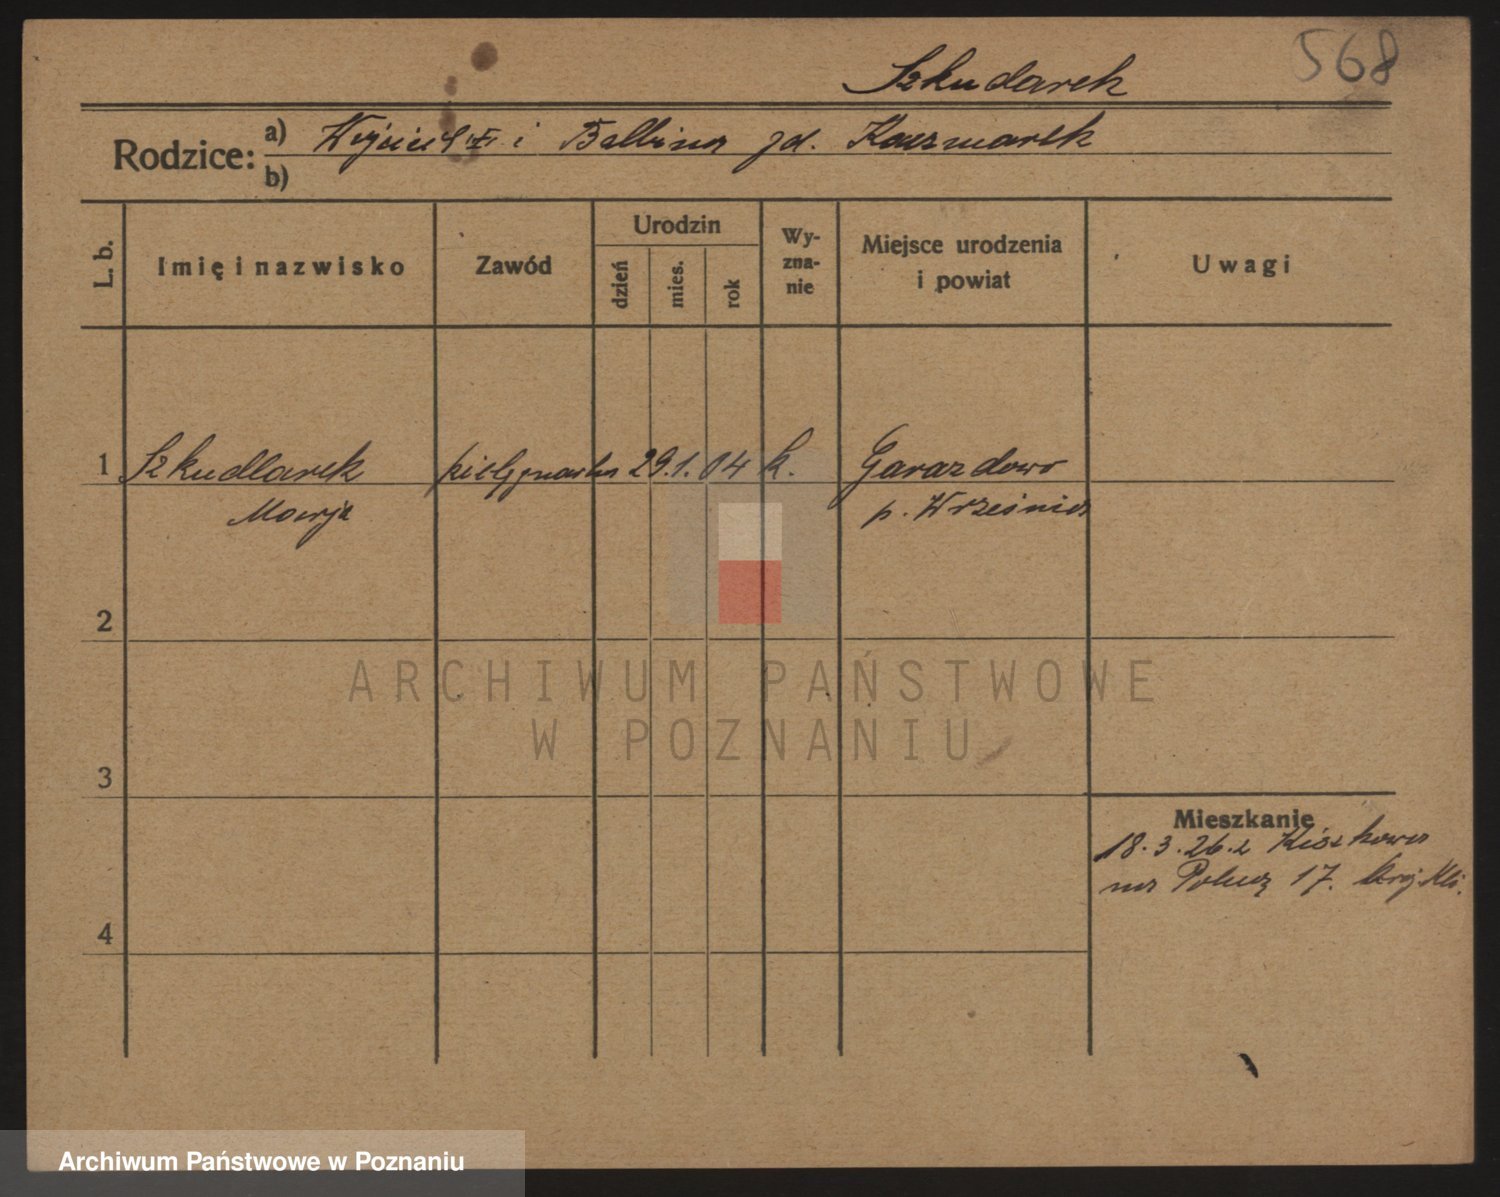 568
Szkudarek
Rodzice: a) Wojciech i Balbina zd. Kaczmarek
b)
L. b.
Imię i nazwisko
Zawód
Urodzin
dzień
mies.
rok
Wy-
zna-
nie
Miejsce urodzenia
i powiat
Uwagi
1 Szkudlarek pielęgniarka 29.1.04 k. Garazdowo
Marja p. Września
2
3
4
Mieszkanie
18.3.26. z Kiszkowa
na Polną 17.
ARCHIWUM PAŃSTWOWE
W POZNANIU
Archiwum Państwowe w Poznaniu